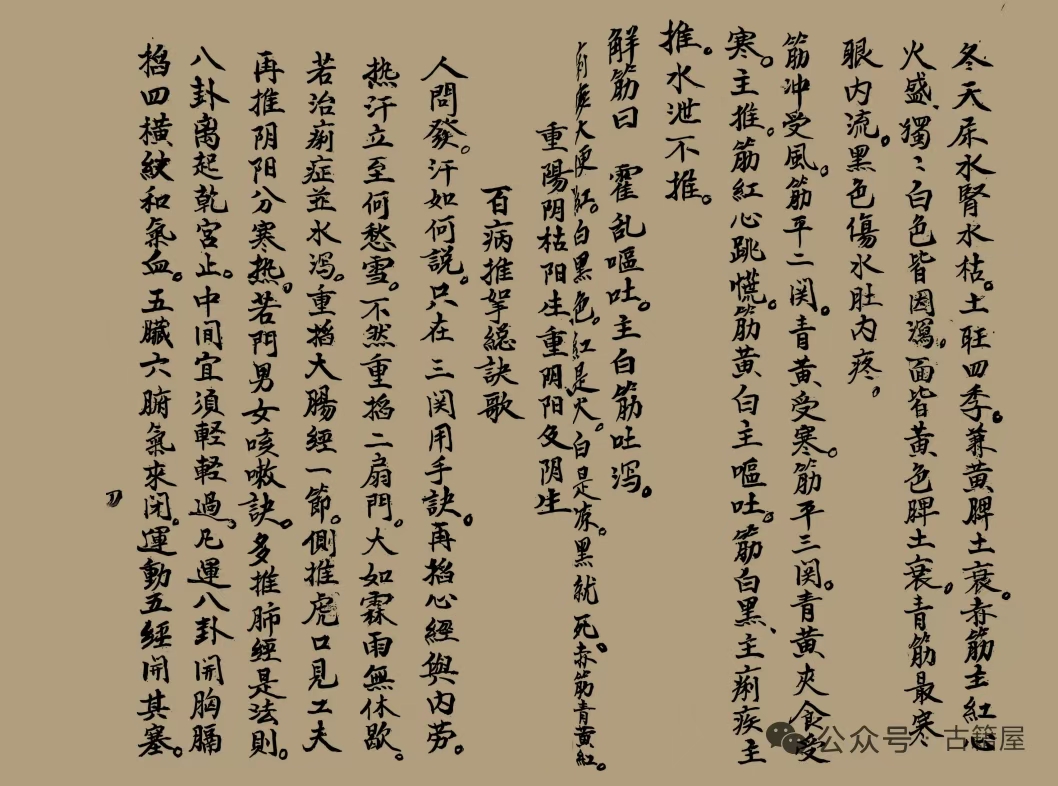 冬天尿水腎水枯。土旺四季。兼黄脾土衰。赤筋主紅心
火盛、獨〻白色皆因瀉。面皆黄色脾土衰。青筋最寒
眼内流。黑色傷水肚内疼。
筋冲受風。筋平二関。青黄受寒。筋平三関。青黄夾食受
寒。主推。筋紅心跳慌。筋黄白主嘔吐。筋白黑、主痢疾主
推。水泄不推。
解筋曰 霍乱嘔吐。主白筋吐瀉。
大便紅。白黑色。紅是火。白是凉。黑就死。赤筋青黄紅。
重陽阴枯阳生重阴阳反阴生
百病推拏総訣歌
人問發。汗如何説。只在三関用手訣。再掐心經與内劳。
热汗立至何愁雪。不然重掐二扇門。大如霖雨無休歇。
若治痢症並水瀉。重掐大腸經一節。側推虎口見工夫
再推阴阳分寒热。若門男女咳嗽訣。多推肺經是法則。
八卦离起乾宫止。中间宜須輕輕過。凡運八卦開胸膈
掐四横紋和氣血。五臟六腑氣來闭。運動五經開其塞。
公众号 · 古籍屋